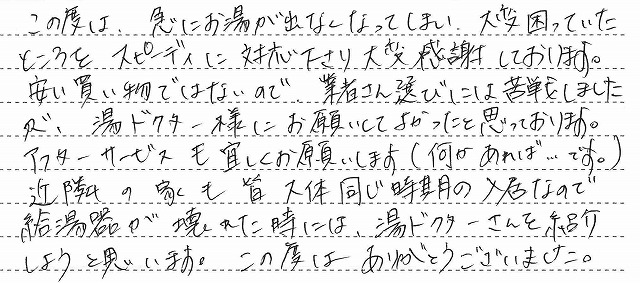 この度は、急にお湯が出なくなってしまい、大変困っていた
ところを スピーディに対応下さり大変感謝しております。
安い買い物ではないので、業者さん選びには苦戦しました
が、湯ドクター様にお願いしてよかったと思っております。
アフターサービスも宜しくお願いします(何かあれば…です。)
近隣の家も皆大体同じ時期の入居なので
給湯器が壊れた時には、湯ドクターさんを紹介
しようと思います。この度はありがとうございました。